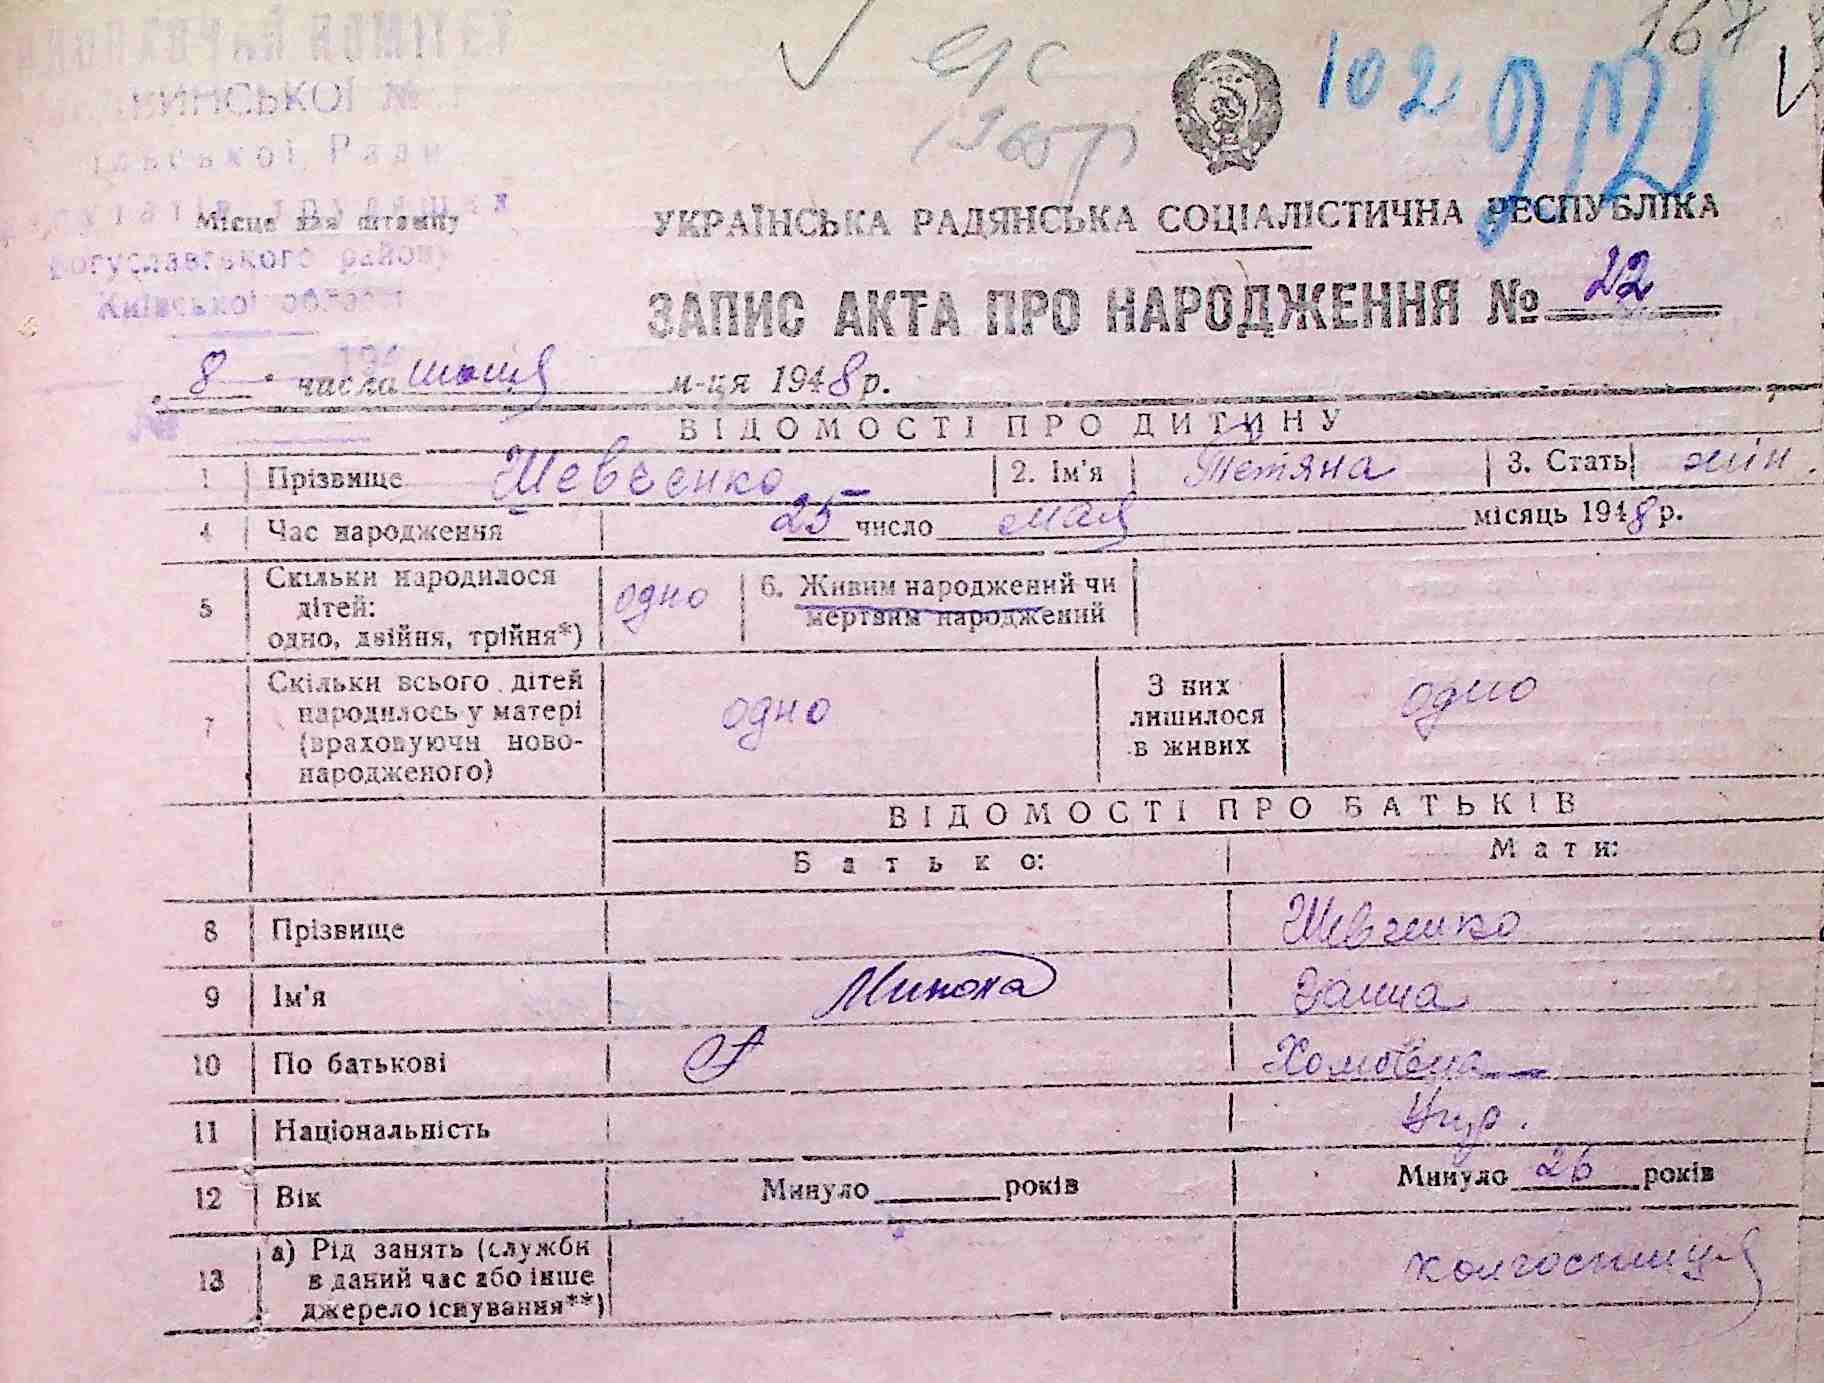 167
102
КИНСЬКОЇ №
Ради
Місце для штампу
Богуславського району
Київської області
УКРАЇНСЬКА РАДЯНСЬКА СОЦІАЛІСТИЧНА РЕСПУБЛІКА
ЗАПИС АКТА ПРО НАРОДЖЕННЯ № 22
8 числа м-ця 1948 р.
№
ВІДОМОСТІ ПРО ДИТИНУ
1 Прізвище Шевченко 2. Ім'я Тетяна 3. Стать жін.
4 Час народження 25 число мая місяць 1948 р.
5 Скільки народилося дітей: одно, двійня, трійня*) одно 6. Живим народжений чи мертвим народжений
7 Скільки всього дітей народилось у матері (враховуючи новонародженого) одно З них лишилося в живих одно
ВІДОМОСТІ ПРО БАТЬКІВ
Батько: Мати:
8 Прізвище Шевченко
9 Ім'я Микола Ганна
10 По батькові Хомівна
11 Національність Укр.
12 Вік Минуло років Минуло 26 років
13 а) Рід занять (служби в даний час або інше джерело існування**) колгоспниця